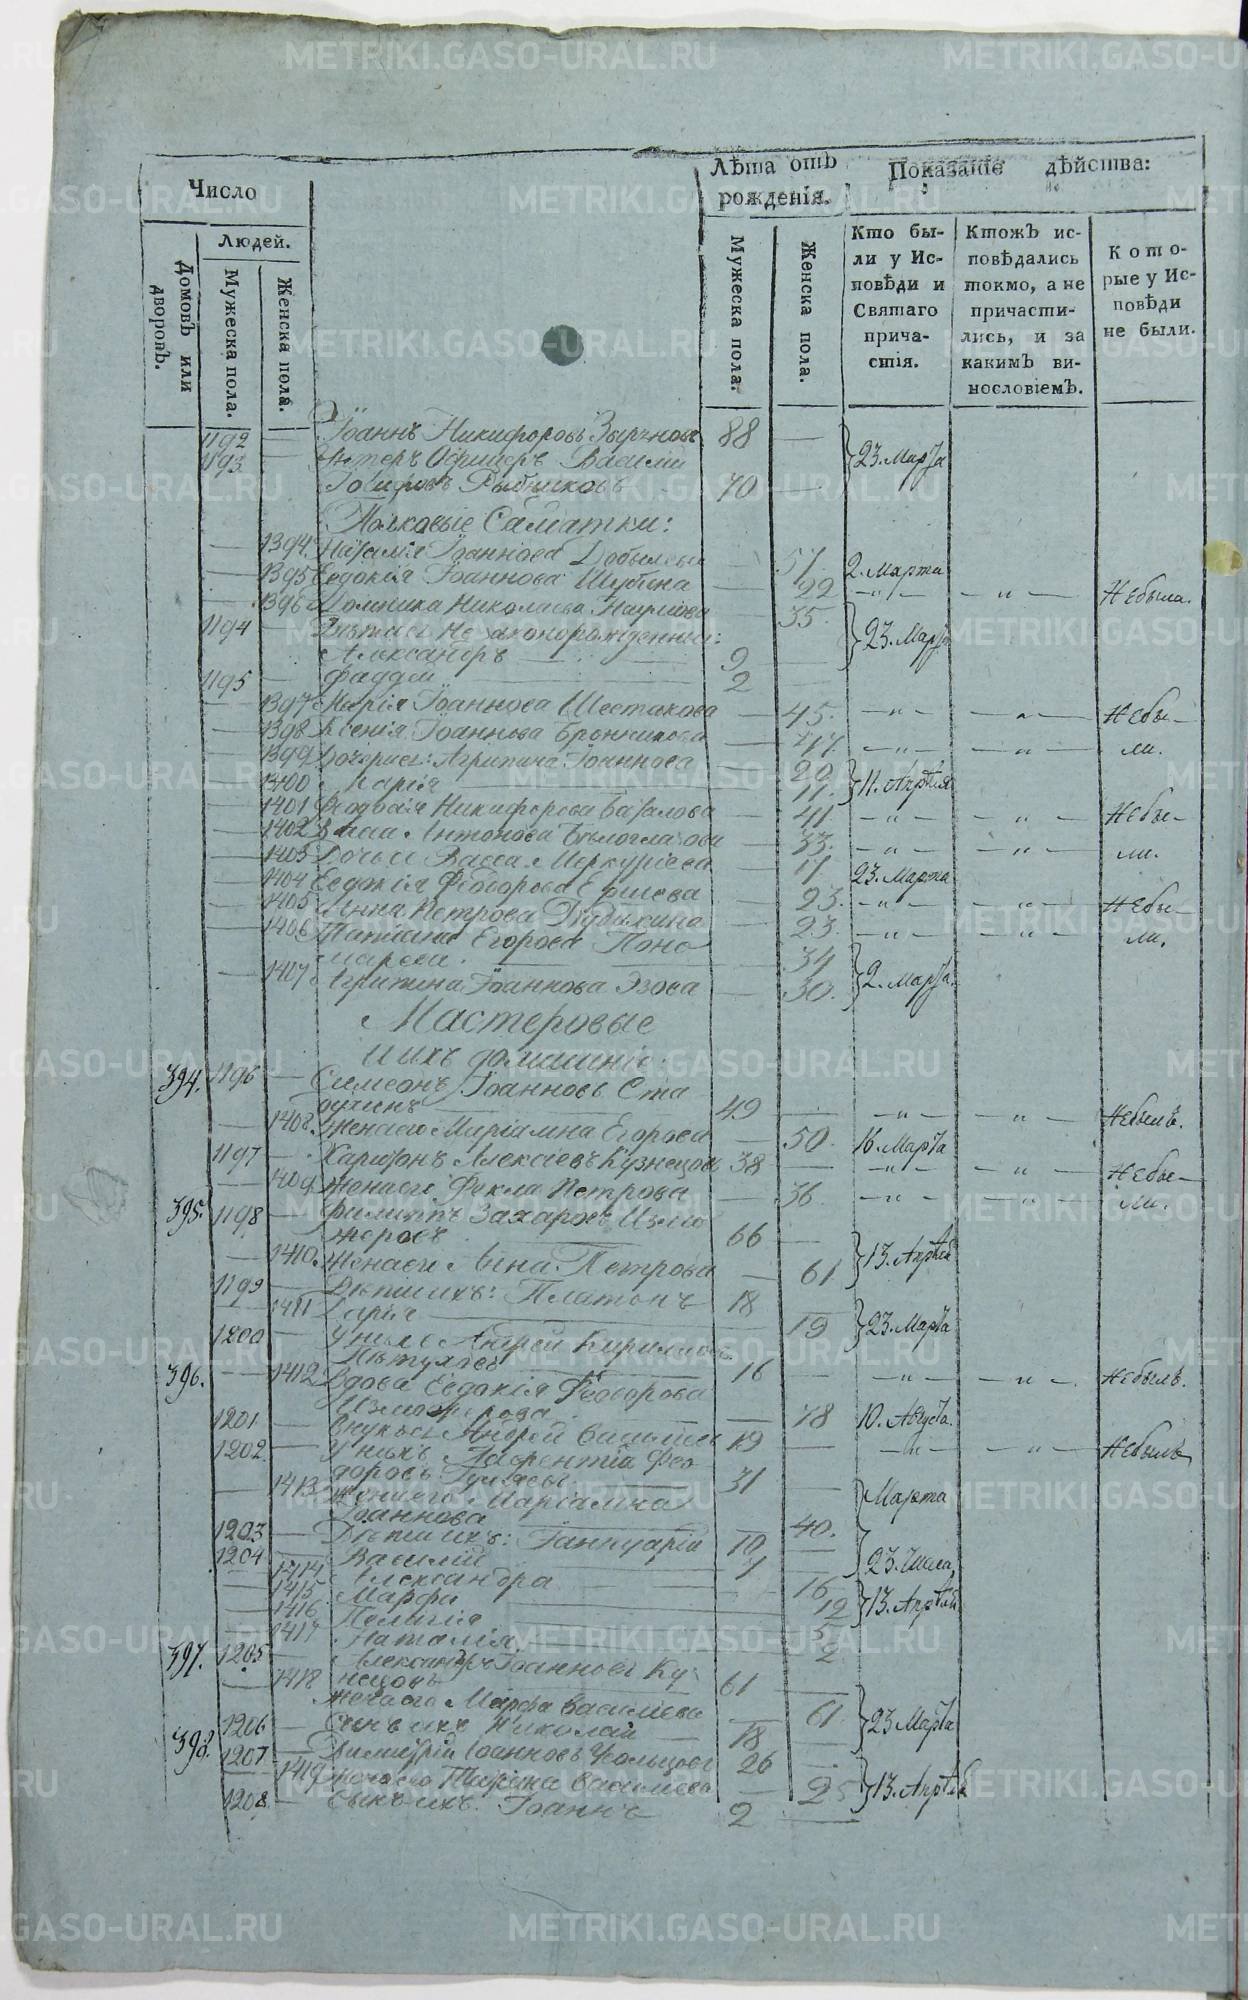 Число
Лѣта отъ рожденія.
Показаніе дѣйства:
Домовъ или дворовъ.
Людей.
Мужеска пола.
Женска пола.
Мужеска пола.
Женска пола.
Кто бы-
ли у Ис-
повѣди и
Святаго
прича-
стія.
Ктожъ ис-
повѣдались
токмо, а не
причасти-
лись, и за
какимъ ви-
нословіемъ.
Кото-
рые у Ис-
повѣди
не были.
1192 — Іоаннъ Никифоровъ 88 — 23. Марта
1193 — Унтеръ Офицеръ Василій
Іосифовъ Рыбниковъ 70 —
Полковыіе Салдатки:
— 1394. Наталія Іоаннова — 57. 2. Марта
— 1395 Евдокія Іоаннова Шубина — 22 — „ — — „ — Небыла.
— 1396 Домника Николаева Наумова — 35. 23. Марта
1194 — Дѣти ея незаконорожденныи:
Александръ 9 —
1195 — Фаддей 2
— 1397 Марія Іоаннова Шестакова — 45. — „ — — „ — Небы-
— 1398 Ксенія Іоаннова Бронникова — 47 — „ — — „ — ли.
— 1399 Дочери ея: Агрипина Іоаннова — 20 11. Апрѣля
— 1400 Марія — 11.
— 1401 Никифорова — 41 — „ — „ Небы-
— 1402 Васса Антонова Бѣлоглазова — 33. — „ — — „ — ли.
— 1403 Дочь ея Васса Меркуріева — 11 23. Марта
— 1404 Евдокія Ѳеодорова Ершева — 23. — „ — „ Небы-
— 1405 Анна Петрова — 23. — „ — „ ли.
— 1406 Татіана Егорова Поно
марева. 34 2. Марта.
— 1407 Агрипина Іоаннова — 30.
Мастеровые
и ихъ домашніе:
394. 1196 — Симеонъ Іоанновъ Ста
духинъ 49 — — „ — „ Небылъ.
— 1408. Жена его Маріамна Егорова — 50. 16. Марта
1197 — Харитонъ Алексіевъ Кузнецовъ 38 — — „ — „ Небы-
— 1409 Жена его Ѳекла Петрова — 36 — „ — „ ли.
395. 1198 — Филиппъ Захаровъ Измо
жеровъ 66 — 13. Апрѣля
— 1410. Жена его Анна Петрова — 61
1199 — Дѣти ихъ: Платонъ 18 23. Марта
— 1411 Дарія — 19
1200 — У нихъ Андрей Кириловъ
Пѣтуховъ 16 — — „ — — „ — Небылъ.
396. — 1412 Вдова Евдокія Ѳеодорова
Изможерова — 78 10. Августа.
1201 — Внукъ ея Андрей Василіевъ 19 — — „ — — „ — Небылъ
1202. — У нихъ Лаврентій Ѳео
доровъ 31 — Марта
— 1413 Жена его Маріамна
Іоаннова — 40.
1203 — Дѣти ихъ: Іаннуарій 10 — 23. Числа,
1204 — Василій 7 —
— 1414 Александра — 16 13. Апрѣля
— 1415 Марфа — 12
— 1416 Пелагія — 5
— 1417 Наталія — 2
397. 1205 — Александръ Іоанновъ Куз
нецовъ 61 — 23 Марта
— 1418 Жена его Марфа Василіева 61
1206 — Сынъ ихъ Николай 18 —
398. 1207. — Димитрій Іоанновъ Усольцовъ 26 — 13. Апрѣля
— 1419 Жена его Василіева — 25
1208. — Сынъ ихъ: Іоаннъ 2 —
METRIKI.GASO-URAL.RU